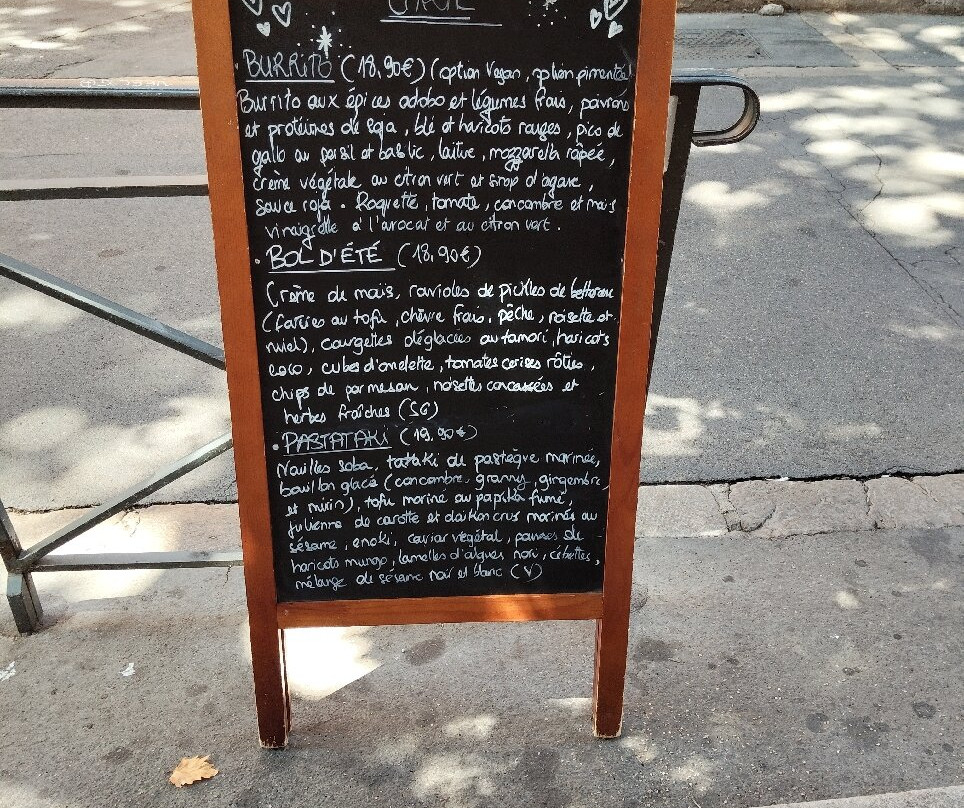 · BURRITO (18,90€) (option vegan, option pimentée)
Burrito aux épices adobo et légumes frais, poivrons
et protéines de soja, blé et haricots rouges, pico de
gallo au persil et basilic, laitue, mozzarella râpée,
crème végétale au citron vert et sirop d'agave,
sauce roja. Roquette, tomate, concombre et maïs
vinaigrette à l'avocat et au citron vert.
· BOL D'ÉTÉ (18,90€)
Crème de maïs, ravioles de pickles de betterave
(farcies au tofu, chèvre frais, pêche, noisette et
miel), courgettes déglacées au tamari, haricots
coco, cubes d'omelette, tomates cerises rôties,
chips de parmesan, noisettes concassées et
herbes fraîches (SG)
· PASTATAKI (19,90€)
Nouilles soba, tataki de pastèque marinée,
bouillon glacé (concombre, granny, gingembre
et mirin), tofu mariné au paprika fumé,
julienne de carotte et daïkon crus marinés au
sésame, enoki, caviar végétal, pousses de
haricots mungo, lamelles d'algues nori, cébettes,
mélange de sésame noir et blanc (V)